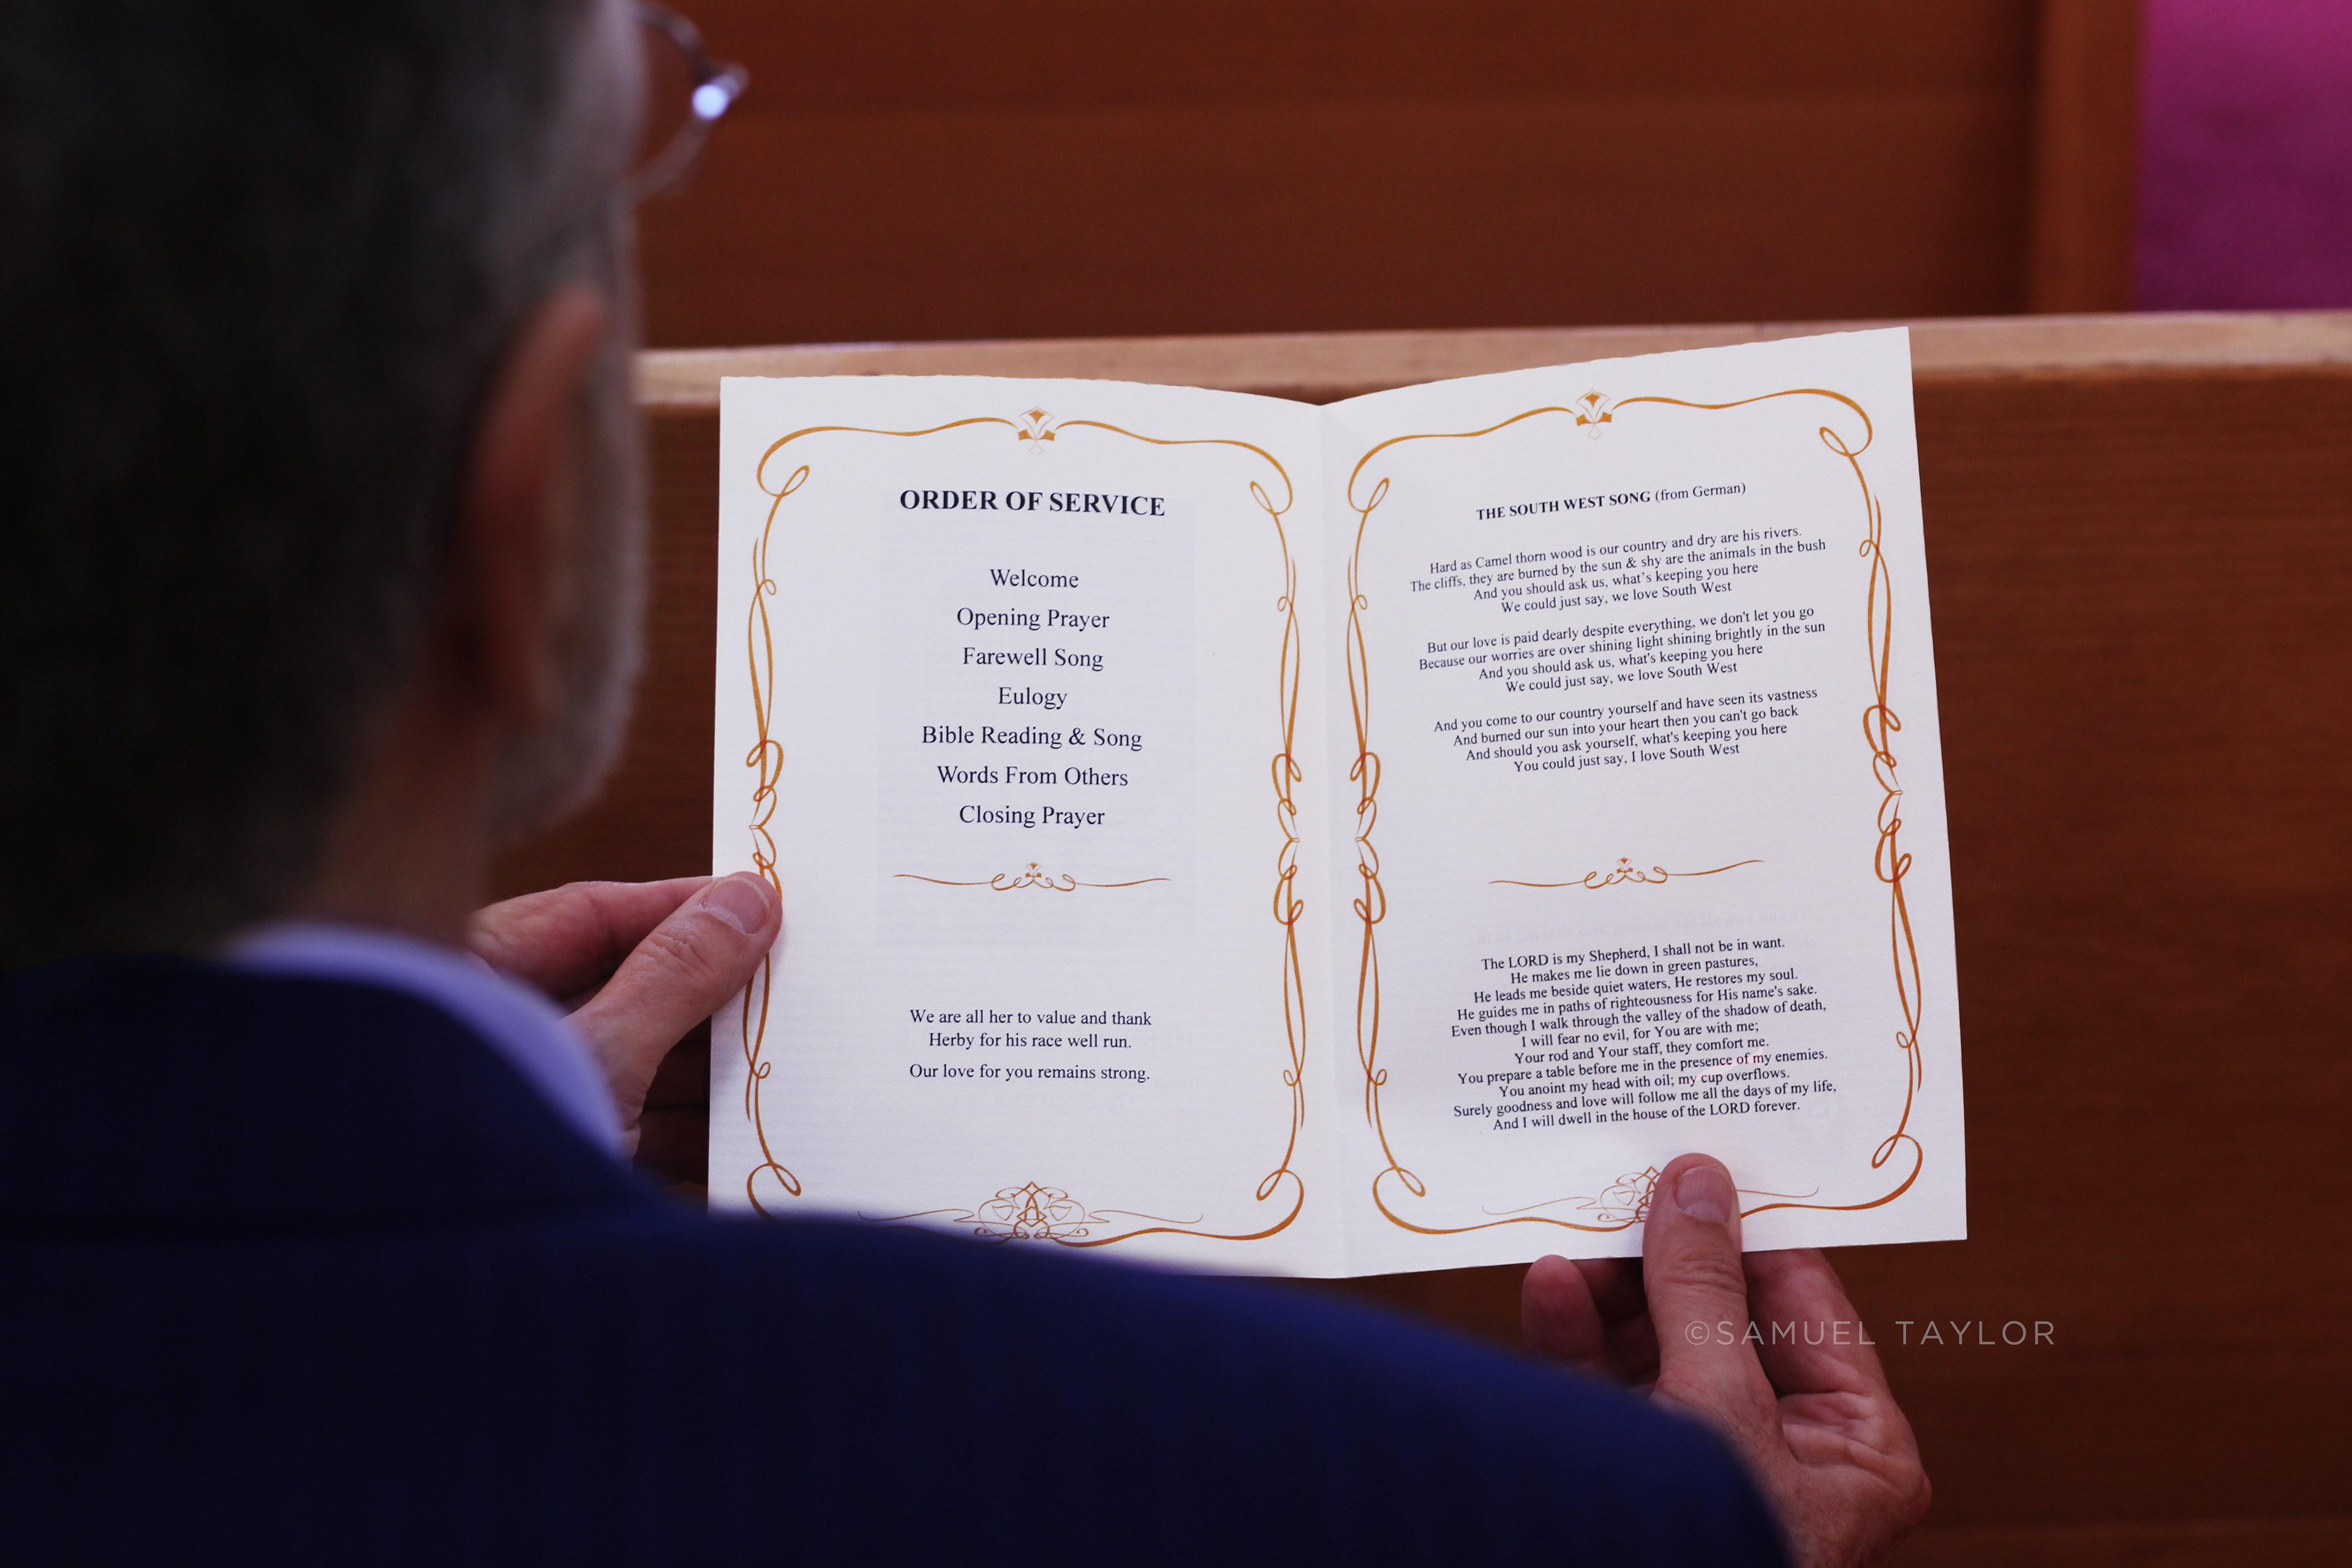 ORDER OF SERVICE
Welcome
Opening Prayer
Farewell Song
Eulogy
Bible Reading & Song
Words From Others
Closing Prayer
We are all her to value and thank
Herby for his race well run.
Our love for you remains strong.
THE SOUTH WEST SONG (from German)
Hard as Camel thorn wood is our country and dry are his rivers.
The cliffs, they are burned by the sun & shy are the animals in the bush
And you should ask us, what's keeping you here
We could just say, we love South West
But our love is paid dearly despite everything, we don't let you go
Because our worries are over shining light shining brightly in the sun
And you should ask us, what's keeping you here
We could just say, we love South West
And you come to our country yourself and have seen its vastness
And burned our sun into your heart then you can't go back
And should you ask yourself, what's keeping you here
You could just say, I love South West
The LORD is my Shepherd, I shall not be in want.
He makes me lie down in green pastures,
He leads me beside quiet waters, He restores my soul.
He guides me in paths of righteousness for His name's sake.
Even though I walk through the valley of the shadow of death,
I will fear no evil, for You are with me;
Your rod and Your staff, they comfort me.
You prepare a table before me in the presence of my enemies.
You anoint my head with oil; my cup overflows.
Surely goodness and love will follow me all the days of my life,
And I will dwell in the house of the LORD forever.
©SAMUEL TAYLOR